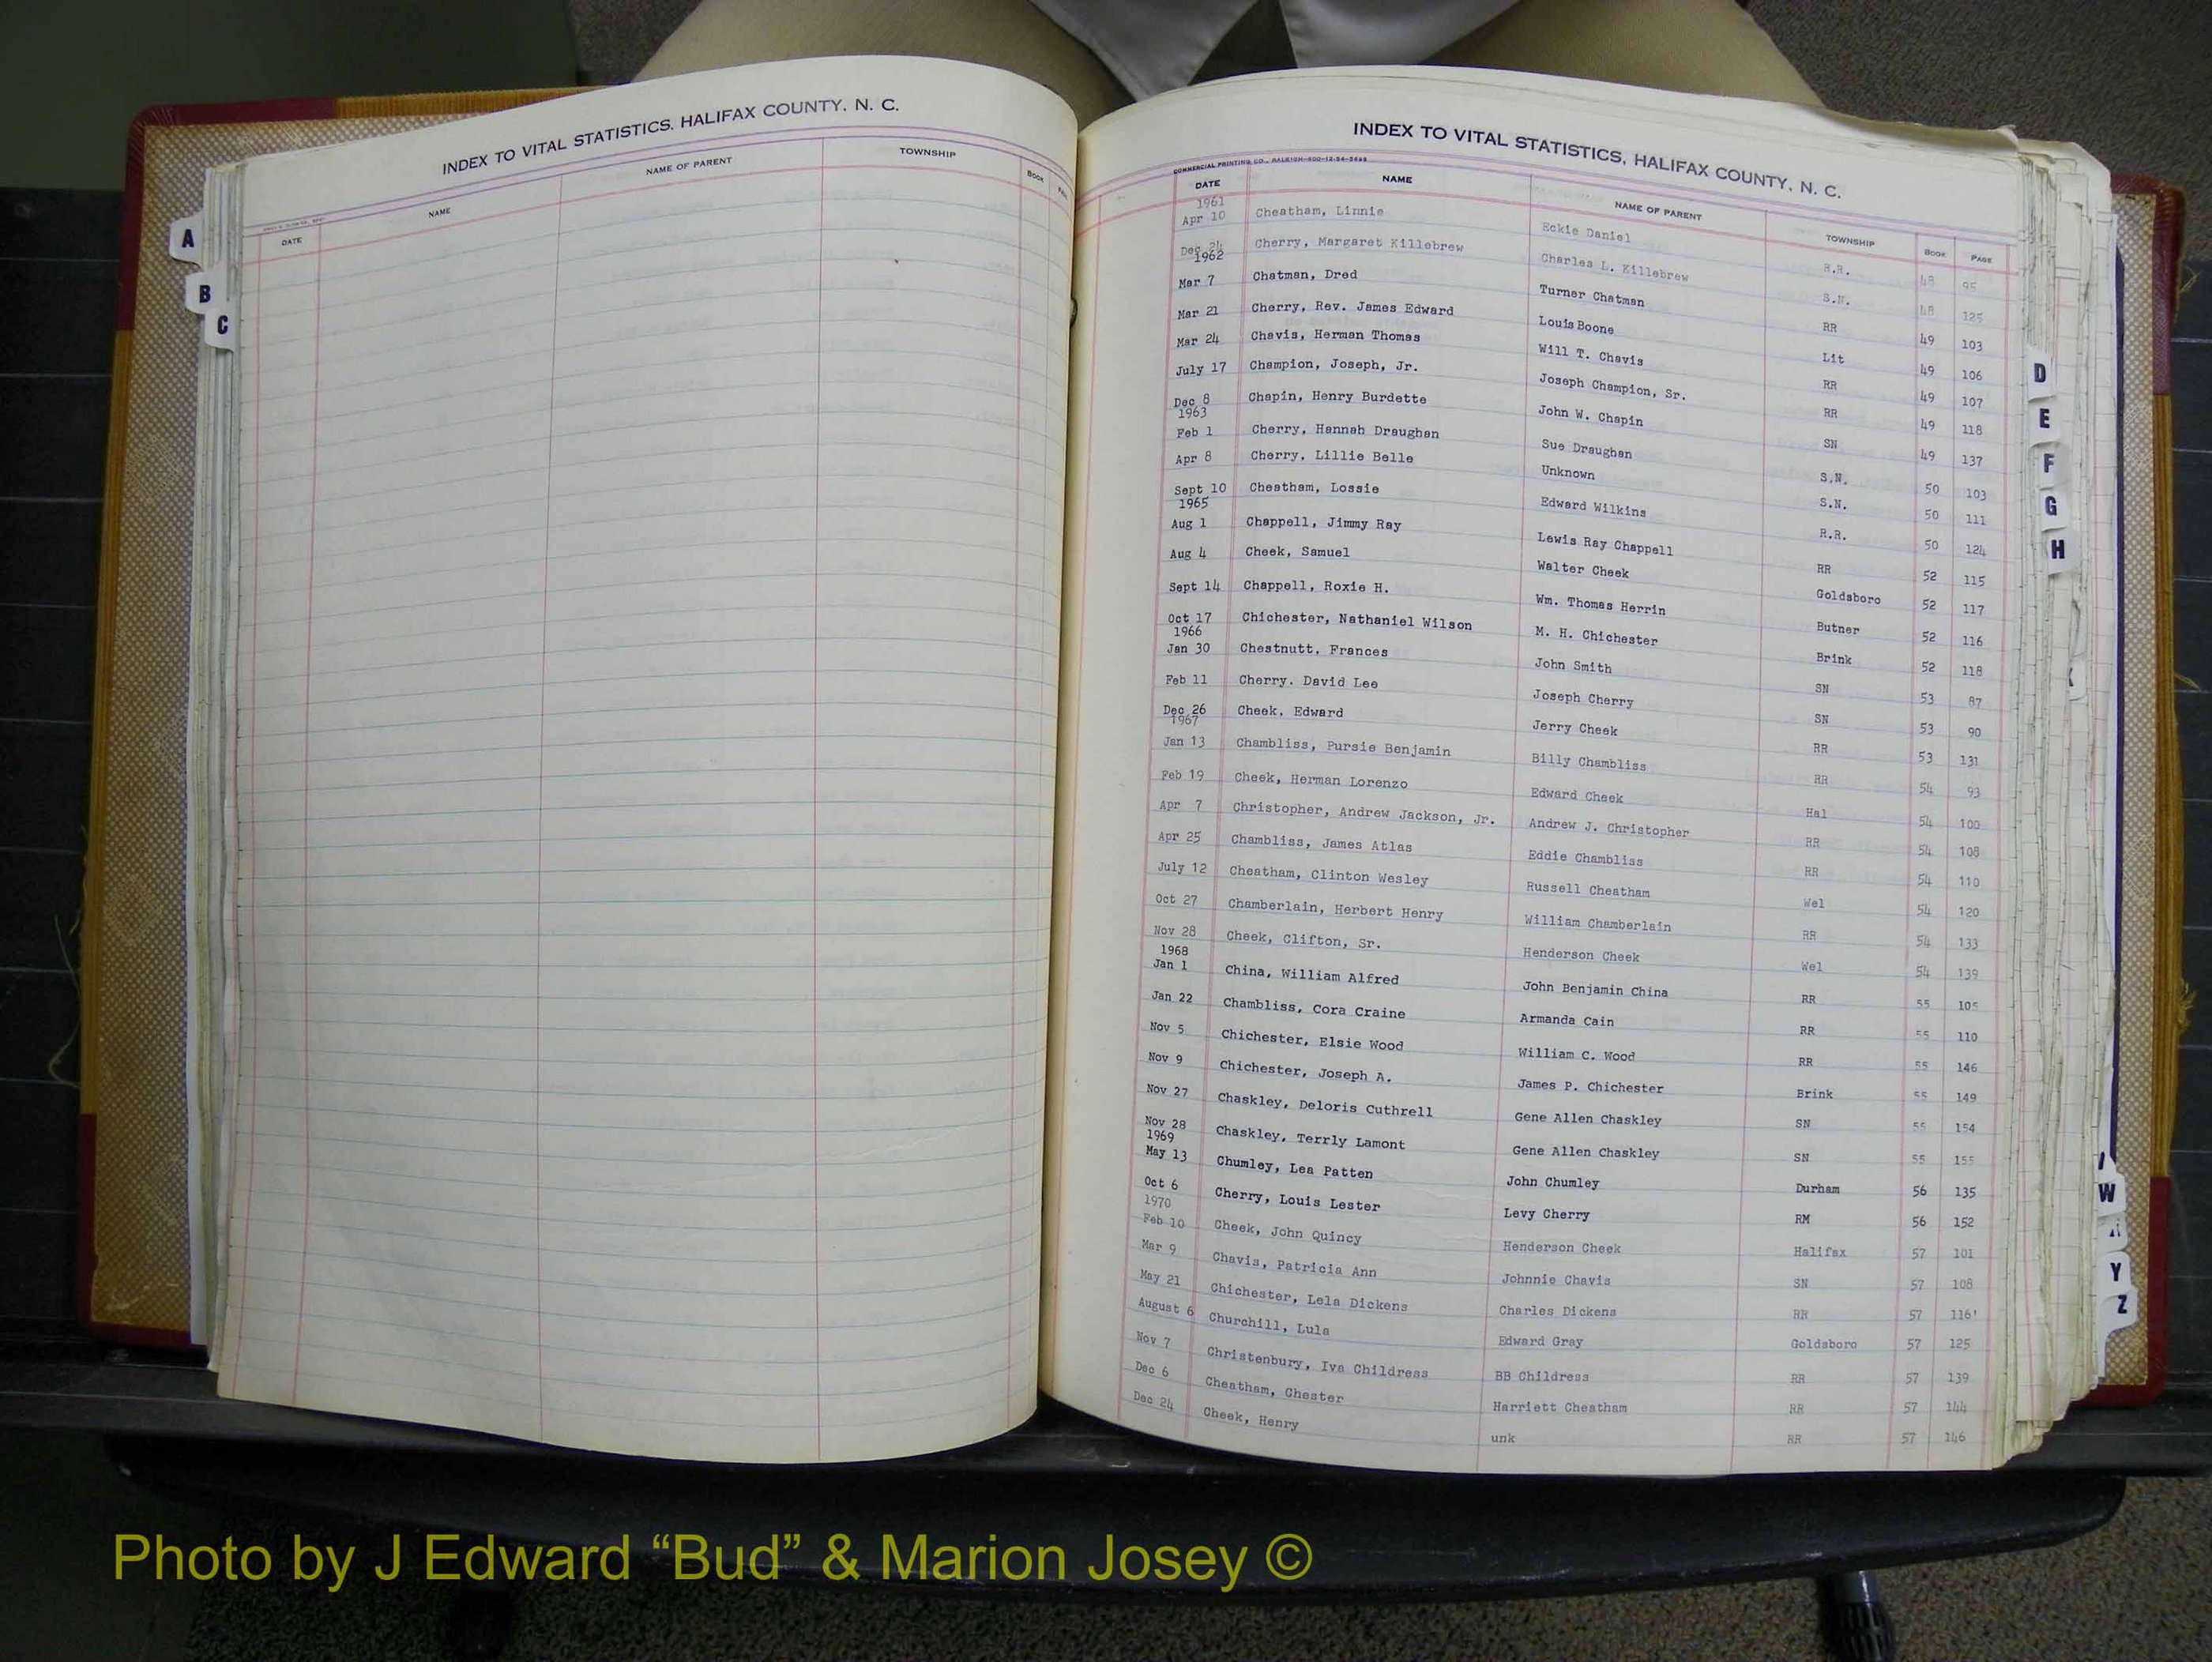 INDEX TO VITAL STATISTICS, HALIFAX COUNTY, N. C.
DATE NAME NAME OF PARENT TOWNSHIP BOOK
A
B
C
INDEX TO VITAL STATISTICS, HALIFAX COUNTY, N. C.
COMMERCIAL PRINTING CO., RALEIGH
DATE NAME NAME OF PARENT TOWNSHIP BOOK PAGE
1961
Apr 10 Cheatham, Linnie Eckie Daniel R.R. 48 95
Dec 24 Cherry, Margaret Killebrew Charles L. Killebrew S.N. 48 125
1962
Mar 7 Chatman, Dred Turner Chatman RR 49 103
Mar 21 Cherry, Rev. James Edward Louis Boone Lit 49 106
Mar 24 Chavis, Herman Thomas Will T. Chavis RR 49 107
July 17 Champion, Joseph, Jr. Joseph Champion, Sr. RR 49 118
Dec 8 Chapin, Henry Burdette John W. Chapin SN 49 137
1963
Feb 1 Cherry, Hannah Draughan Sue Draughan S.N. 50 103
Apr 8 Cherry, Lillie Belle Unknown S.N. 50 111
Sept 10 Cheatham, Lossie Edward Wilkins R.R. 50 124
1965
Aug 1 Chappell, Jimmy Ray Lewis Ray Chappell RR 52 115
Aug 4 Cheek, Samuel Walter Cheek Goldsboro 52 117
Sept 14 Chappell, Roxie H. Wm. Thomas Herrin Butner 52 116
Oct 17 Chichester, Nathaniel Wilson M. H. Chichester Brink 52 118
1966
Jan 30 Chestnutt, Frances John Smith SN 53 87
Feb 11 Cherry. David Lee Joseph Cherry SN 53 90
Dec 26 Cheek, Edward Jerry Cheek RR 53 131
1967
Jan 13 Chambliss, Pursie Benjamin Billy Chambliss RR 54 93
Feb 19 Cheek, Herman Lorenzo Edward Cheek Hal 54 100
Apr 7 Christopher, Andrew Jackson, Jr. Andrew J. Christopher RR 54 108
Apr 25 Chambliss, James Atlas Eddie Chambliss RR 54 110
July 12 Cheatham, Clinton Wesley Russell Cheatham Wel 54 120
Oct 27 Chamberlain, Herbert Henry William Chamberlain RR 54 133
Nov 28 Cheek, Clifton, Sr. Henderson Cheek Wel 54 139
1968
Jan 1 China, William Alfred John Benjamin China RR 55 105
Jan 22 Chambliss, Cora Craine Armanda Cain RR 55 110
Nov 5 Chichester, Elsie Wood William C. Wood RR 55 146
Nov 9 Chichester, Joseph A. James P. Chichester Brink 55 149
Nov 27 Chaskley, Deloris Cuthrell Gene Allen Chaskley SN 55 154
Nov 28 Chaskley, Terrly Lamont Gene Allen Chaskley SN 55 155
1969
May 13 Chumley, Lea Patten John Chumley Durham 56 135
Oct 6 Cherry, Louis Lester Levy Cherry RM 56 152
1970
Feb 10 Cheek, John Quincy Henderson Cheek Halifax 57 101
Mar 9 Chavis, Patricia Ann Johnnie Chavis SN 57 108
May 21 Chichester, Lela Dickens Charles Dickens RR 57 116'
August 6 Churchill, Lula Edward Gray Goldsboro 57 125
Nov 7 Christenbury, Iva Childress BB Childress RR 57 139
Dec 6 Cheatham, Chester Harriett Cheatham RR 57 144
Dec 24 Cheek, Henry unk RR 57 146
D
E
F
G
H
W
Y
Z
Photo by J Edward “Bud” & Marion Josey ©